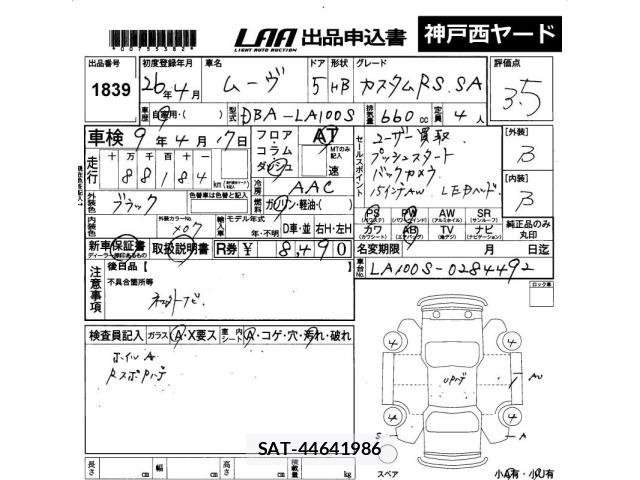 00755382
LAA 出品申込書 神戸西ヤード
LIGHT AUTO AUCTION
出品番号 初度登録年月 車名 ドア 形状 グレード 評価点
1839 26年4月 ムーヴ 5 HB カスタムRS.SA 3.5
車歴 自家用・( ) 型式 DBA-LA100S 排気量 660cc 定員 4人
車検 9年4月17日
フロア・コラム・ダッシュ AT MTのみ記入 速
走行 十万 万 千 百 十 一
88184 km
冷房 AAC
燃料 ガソリン・軽油・( )
セールスポイント
ユーザー買取
プッシュスタート
バックカメラ
15インチAW LEDヘッド
[外装] B
[内装] B
外装色 ブラック 色替車は色替と記入
外装カラーNo. X07
輸入車 モデル年式 年・不明 D車・並 右H・左H
PS PW AW SR
(パワステ) (パワーウインド) (アルミホイル) (サンルーフ)
カワ AB TV ナビ
(カワシート) (エアバッグ) (地デジ) (ナビゲーション)
純正品のみ丸印
新車保証書 取扱説明書 R券 ¥ 8,490
ディーラー捺印あるもの
名変期限 月 日迄
車台No. LA100S-0284492
注意事項 後日品【
不具合箇所等
ロック車
検査員記入 ガラス A・X要ス 車内シート A・コゲ・穴・汚れ・破れ
ホイルA
RスポPハゲ
4 4
UPハゲ AU
4 4
S A
長さ cm 幅 cm 高さ cm 積載量 kg
スペア 小A有・小U有
SAT-44641986